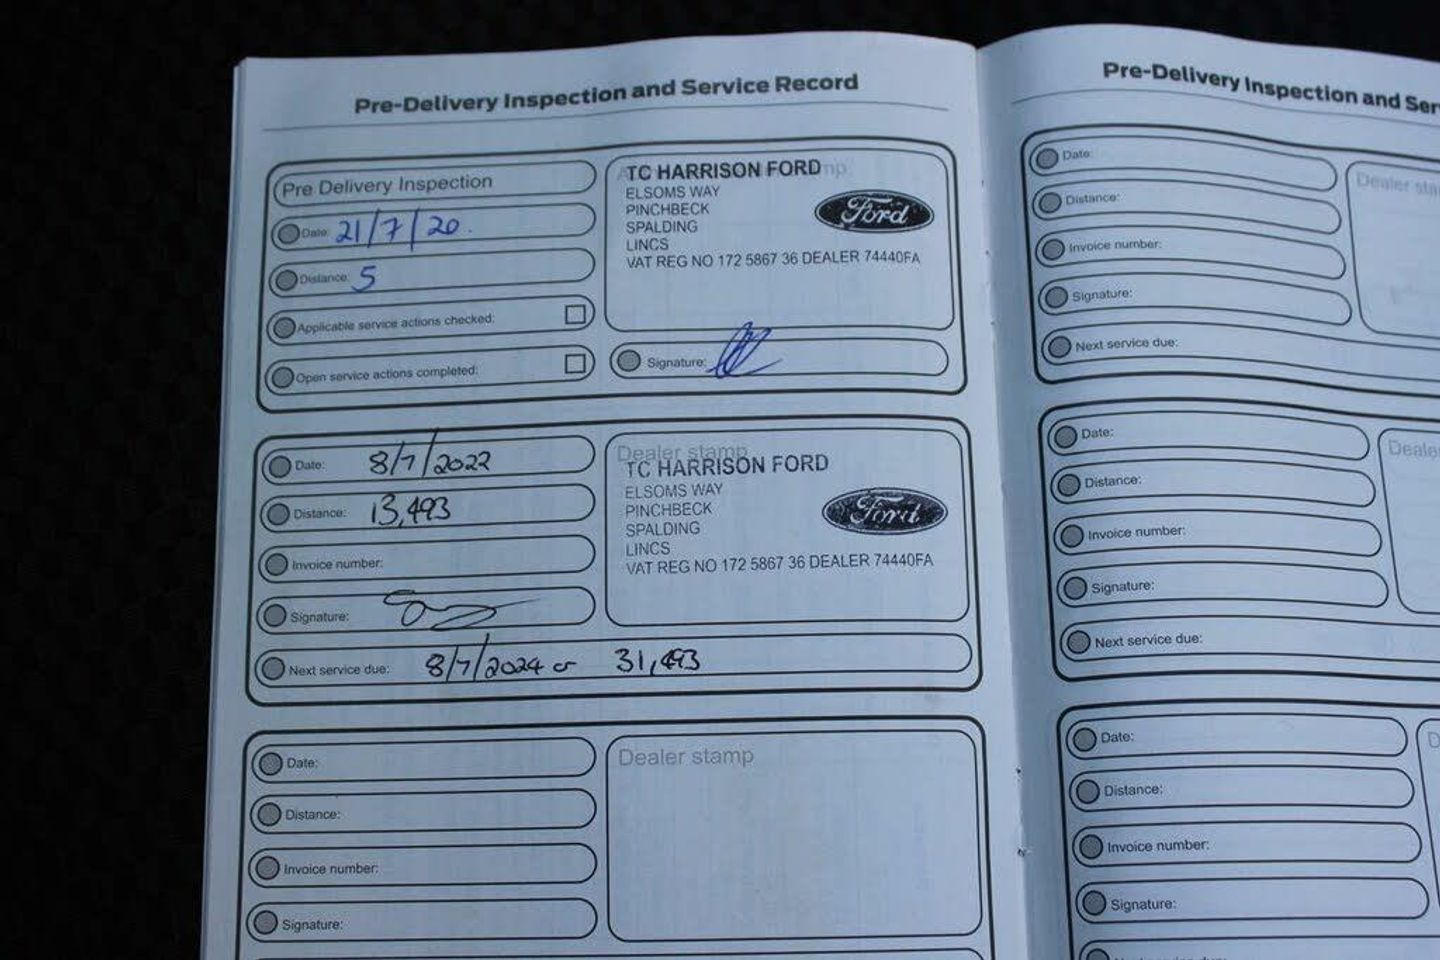 Pre-Delivery Inspection and Service Record
Pre Delivery Inspection
Date: 21/7/20.
Distance: 5
Applicable service actions checked:
Open service actions completed:
TC HARRISON FORD
ELSOMS WAY
PINCHBECK
SPALDING
LINCS
VAT REG NO 172 5867 36 DEALER 74440FA
Ford
Signature:
Date: 8/7/2022
Distance: 13,493
Invoice number:
Signature:
Next service due: 8/7/2024 or 31,493
Dealer stamp
TC HARRISON FORD
ELSOMS WAY
PINCHBECK
SPALDING
LINCS
VAT REG NO 172 5867 36 DEALER 74440FA
Ford
Date:
Distance:
Invoice number:
Signature:
Dealer stamp
Pre-Delivery Inspection and Ser
Date:
Distance:
Invoice number:
Signature:
Next service due:
Dealer sta
Date:
Distance:
Invoice number:
Signature:
Next service due:
Dealer
Date:
Distance:
Invoice number:
Signature: